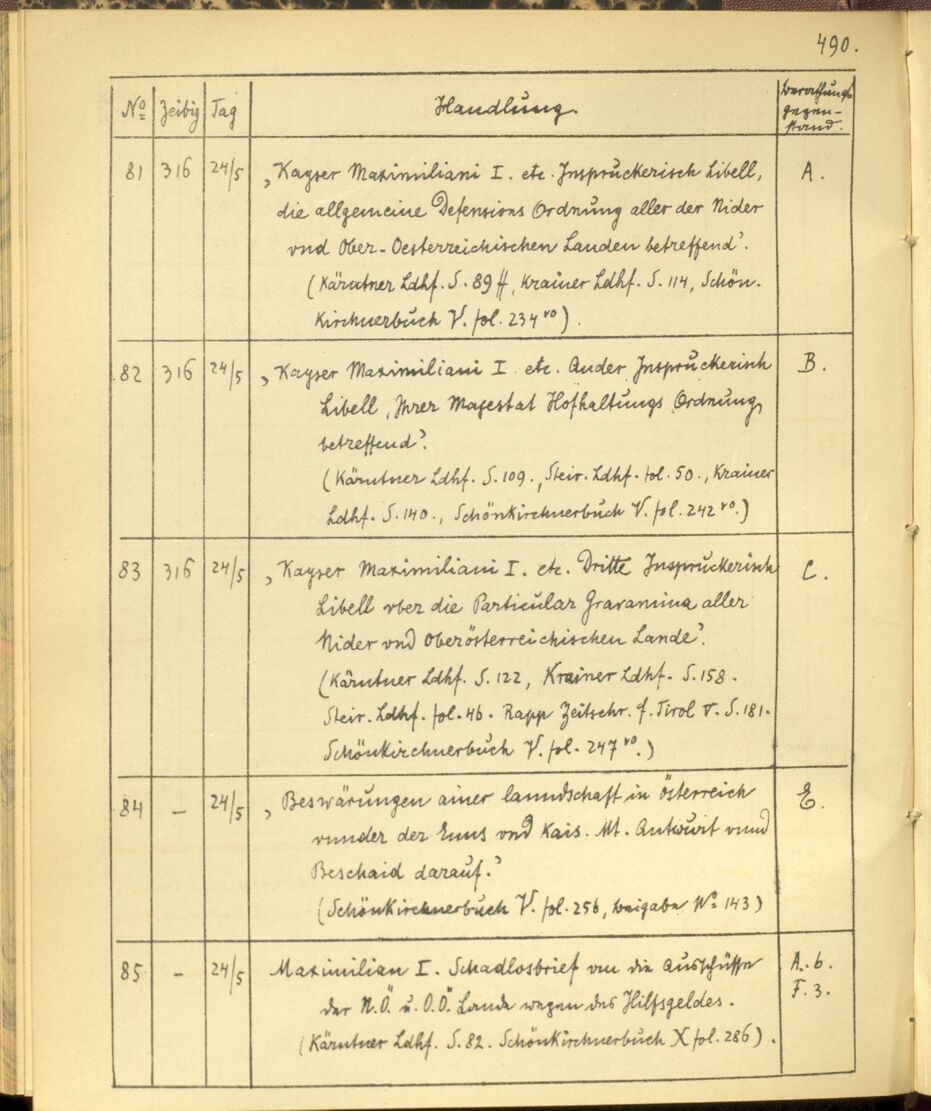 490.
No Zeibig Tag Handlung. Berathungs
gegen-
stand.
81 316 24/5 „Kayser Maximiliani I. etc. Inspruckerisch Libell, A.
die allgemeine Defensions Ordnung aller der Nider
vnd Ober-Oesterreichischen Landen betreffend“.
(Kärntner Ldhf. S. 89 ff, Krainer Ldhf. S. 114, Schön-
Kirchnerbuch V. fol. 234 vo).
82 316 24/5 „Kayser Maximiliani I. etc. Ander Inspruckerisch B.
Libell, Ihrer Magestat Hofhaltungs Ordnung
betreffend“.
(Kärntner Ldhf. S. 109., Steir. Ldhf. fol. 50., Krainer
Ldhf. S. 140., Schönkirchnerbuch V. fol. 242 vo.)
83 316 24/5 „Kayser Maximiliani I. etc. Dritte Inspruckerisch C.
Libell vber die Particular Gravamina aller
Nider vnd Oberösterreichischen Lande“.
(Kärntner Ldhf. S. 122, Krainer Ldhf. S. 158.
Steir. Ldhf. fol. 46. Rapp Zeitschr. f. Tirol V. S. 181.
Schönkirchnerbuch V. fol. 247 vo.)
84 – 24/5 „Beswärungen ainer lanndschaft in Österreich E.
vnnder der Enns vnd Kais. Mt. Antwurt vnnd
Beschaid darauf.“
(Schönkirchnerbuch V. fol. 256, Beigabe No 143)
85 – 24/5 Maximilian I. Schadlosbrief an die Ausschüsse A. b.
der N.Ö. u. O.Ö. Lande wegen des Hilfsgeldes. F. 3.
(Kärntner Ldhf. S. 82. Schönkirchnerbuch X fol. 286).